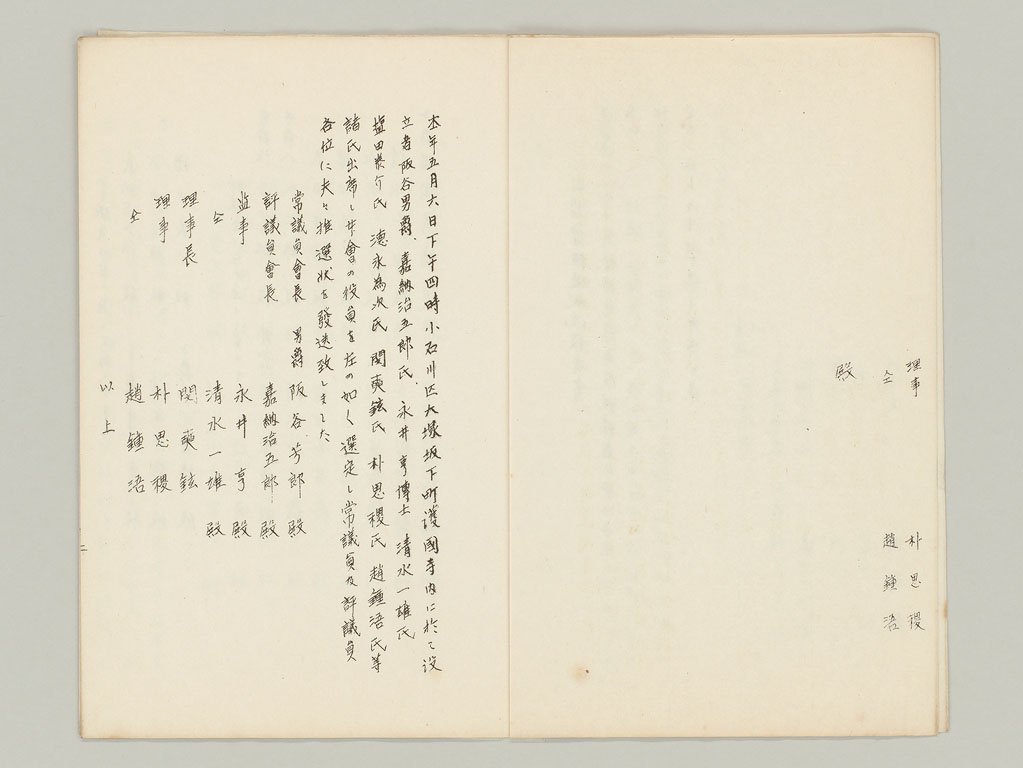 理事 朴思稷
仝 趙鍾浯
殿
本年五月六日下午四時小石川区大塚坂下町護國寺内に於て設
立者阪谷男爵、嘉納治五郎氏、永井亨博士 清水一雄氏
塩田泰介氏 徳永為次氏 閔奭鉉氏 朴思稷氏 趙鍾浯氏等
諸氏出席し本會の役員を左の如く選定し常議員及評議員
各位に夫々推選状を發送致しました
常議員會長 男爵 阪谷芳郎殿
評議員會長 嘉納治五郎殿
监事 永井亨殿
仝 清水一雄殿
理事長 閔奭鉉
理事 朴思稷
仝 趙鍾浯
以上
二